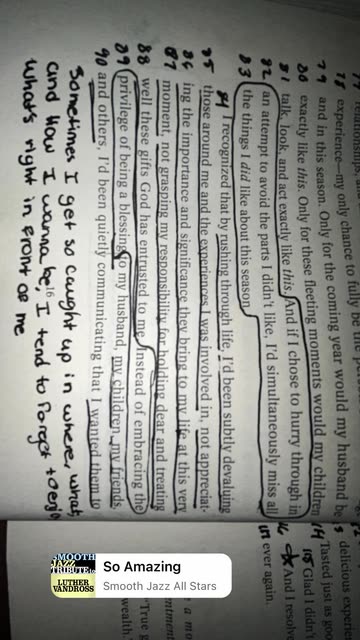 78 experience—my only chance to fully be
79 and in this season. Only for the coming year would my husband be
80 exactly like this. Only for these fleeting moments would my children
81 talk, look, and act exactly like this. And if I chose to hurry through in
82 an attempt to avoid the parts I didn't like, I'd simultaneously miss all
83 the things I did like about this season.
84 I recognized that by rushing through life, I'd been subtly devaluing
85 those around me and the experiences I was involved in, not appreciat-
86 ing the importance and significance they bring to my life at this very
87 moment, not grasping my responsibility for holding dear and treating
88 well these gifts God has entrusted to me. Instead of embracing the
89 privilege of being a blessing to my husband, my children, my friends,
90 and others, I'd been quietly communicating that I wanted them to
Sometimes I get so caught up in where, what
and how I wanna be, I tend to forget to enjo
what's right in front of me
16
delicious experi
114 Tasted just as goo
115 Glad I didn
116 And I resol
117 ever again.
"True g
wealth.
SMOOTH
JAZZ
TRIBUTE to
LUTHER
VANDROSS
So Amazing
Smooth Jazz All Stars